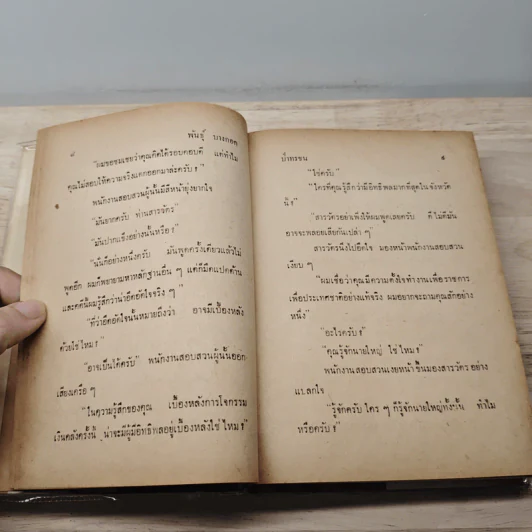 ๘
พันธุ์ บางกอก
"ผมขอชมเชยว่าคุณคิดได้รอบคอบดี แต่ทำไม
คุณไม่สอบให้ความจริงแตกออกมาล่ะครับ ?"
พนักงานสอบสวนผู้นั้นมีสีหน้ายุ่งยากใจ
"มันยากครับ ท่านสารวัตร"
"มันปากแข็งอย่างนั้นหรือ ?"
"นั่นก็อย่างหนึ่งครับ มันพูดครั้งเดียวแล้วไม่
พูดอีก ผมก็พยายามหาหลักฐานอื่น ๆ แต่ก็มืดแปดด้าน
และคดีนี้ผมรู้สึกว่าน่าอึดอัดใจจริง ๆ"
"ที่ว่าอึดอัดใจนั้นหมายถึงว่า อาจมีเบื้องหลัง
ด้วยใช่ไหม ?"
"อาจเป็นได้ครับ" พนักงานสอบสวนผู้นั้นออก
เสียงเครือ ๆ
"ในความรู้สึกของคุณ เบื้องหลังการโจรกรรม
เงินคลังครั้งนี้ น่าจะมีผู้มีอิทธิพลอยู่เบื้องหลังใช่ไหม ?"
ป่าทรชน
๙
"ใช่ครับ"
"ใครที่คุณรู้สึกว่ามีอิทธิพลมากที่สุดในจังหวัด
นี้ ?"
"สารวัตรอย่าเพิ่งให้ผมพูดเลยครับ ดีไม่ดีมัน
อาจจะพลอยเสียกันเปล่า ๆ"
สารวัตรนิ่งไปอึดใจ มองหน้าพนักงานสอบสวน
เงียบ ๆ
"ผมเชื่อว่าคุณมีความตั้งใจทำงานเพื่อราชการ
เพื่อประเทศชาติอย่างแท้จริง ผมอยากจะถามคุณสักอย่าง
หนึ่ง"
"อะไรครับ ?"
"คุณรู้จักนายใหญ่ ใช่ไหม ?"
พนักงานสอบสวนเงยหน้าขึ้นมองสารวัตรอย่าง
แปลกใจ
"รู้จักครับ ใคร ๆ ก็รู้จักนายใหญ่ทั้งนั้น ทำไม
หรือครับ ?"